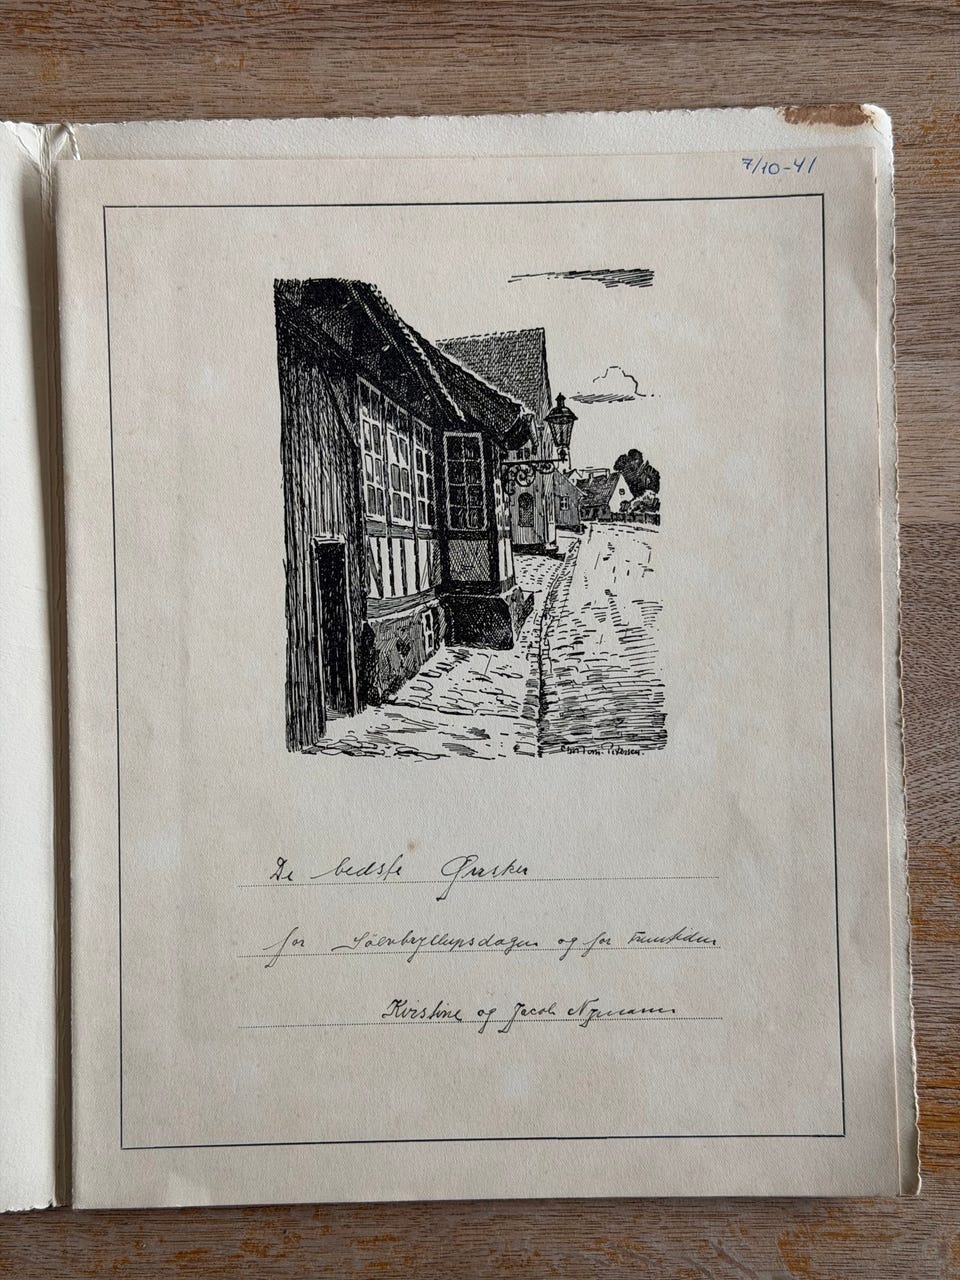 7/10-41
Chr. Tom-Petersen.
De bedste Ønsker
for Sölvbryllupsdagen og for Fremtiden
Kirstine og Jacob Nymann